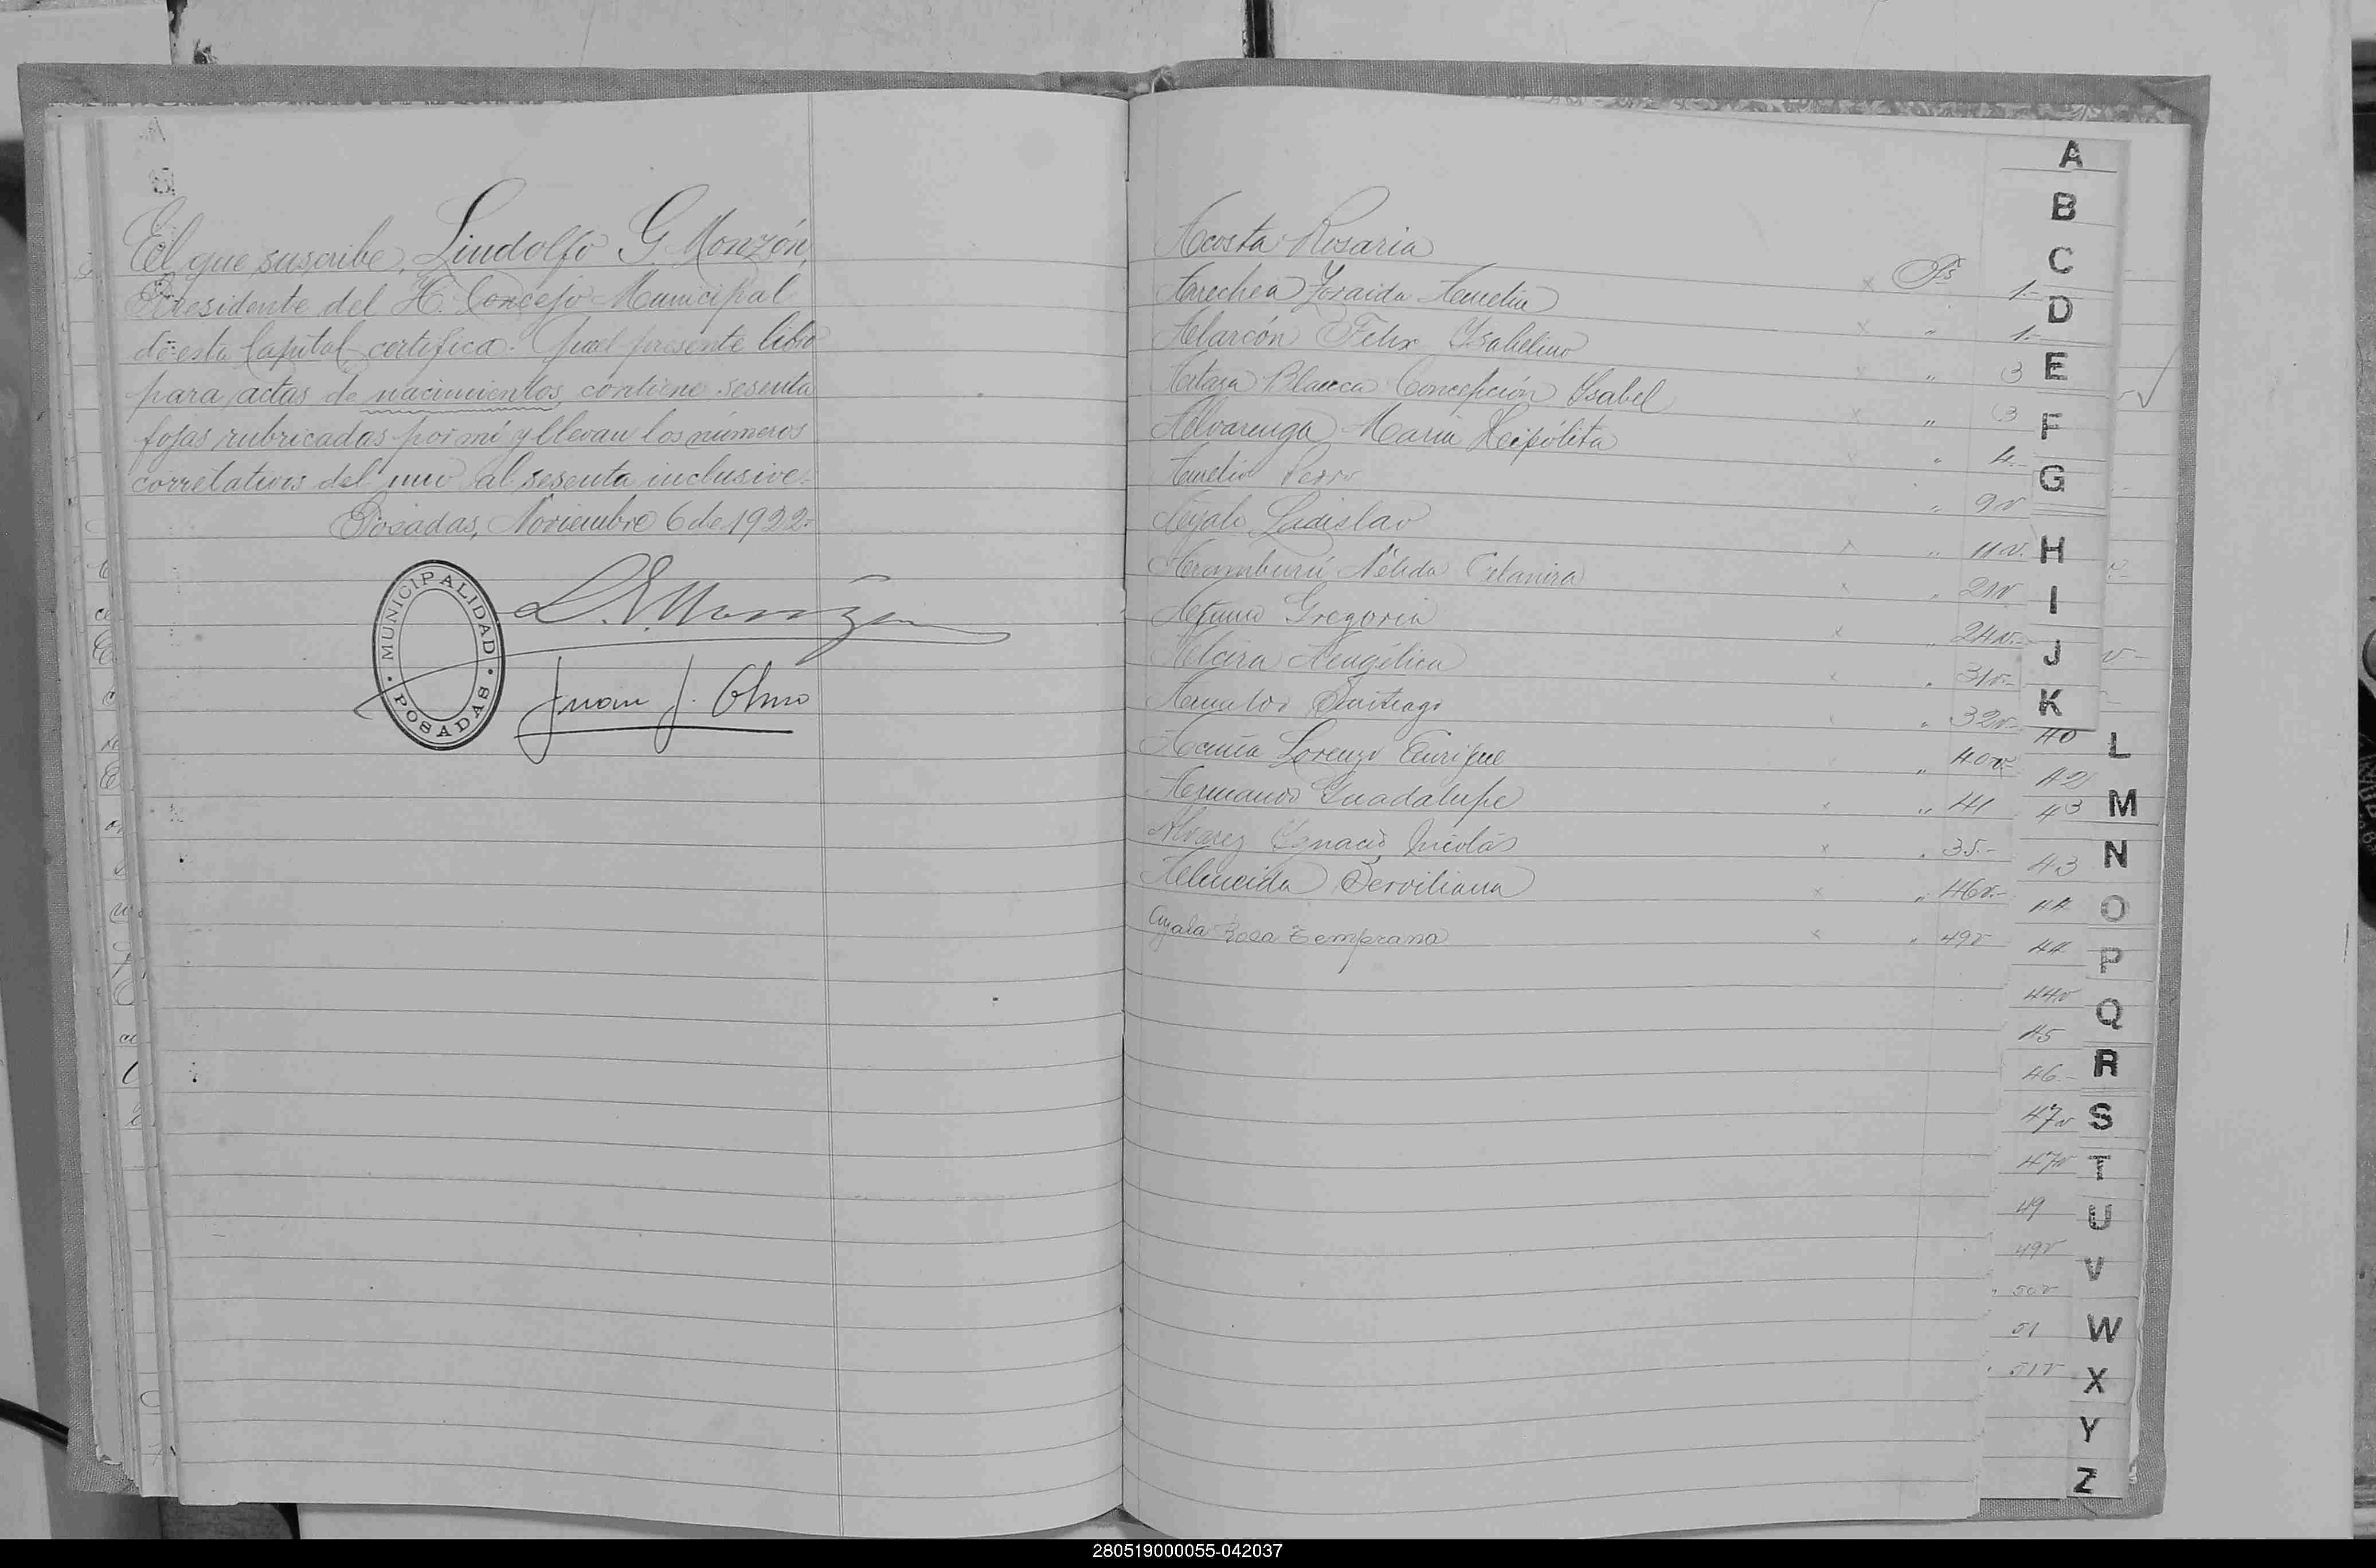 El que suscribe, Lindolfo G. Monzón,
Presidente del H. Concejo Municipal
de esta Capital, certifica: Que el presente libro
para actas de nacimientos, contiene sesenta
fojas rubricadas por mí y llevan los números
correlativos del uno al sesenta inclusive.
Posadas, Noviembre 6 de 1922.
MUNICIPALIDAD
POSADAS
L. G. Monzón
Juan J. Olmo
Acosta Rosaria Fs 1.-
Zoraida Amelia " 1.-
Alarcón Felix Ysabelino " 3
Blanca Concepción Ysabel " 3
Alvarenga Maria Hipólita " 4.-
Amelio " 9v
Ladislao " 11v.
Aramburú Nélida " 21v
Gregoria " 24v.-
Alcira Angélica " 31v.-
Santiago " 32v.-
Acuña Lorenzo Enrique " 40v.-
Guadalupe " 41
Alvarez Ygnacio Nicolás " 35.-
Almeida Serviliana " 46v.-
Ayala Rosa Temprana " 49v
A
B
C
D
E
F
G
H
I
J
K
40
L
42
M
43
N
43
O
44
P
44
44v
Q
45
R
46.-
S
47v
T
47v
U
49
V
49v
50v
W
51
X
51v
Y
Z
280519000055-042037